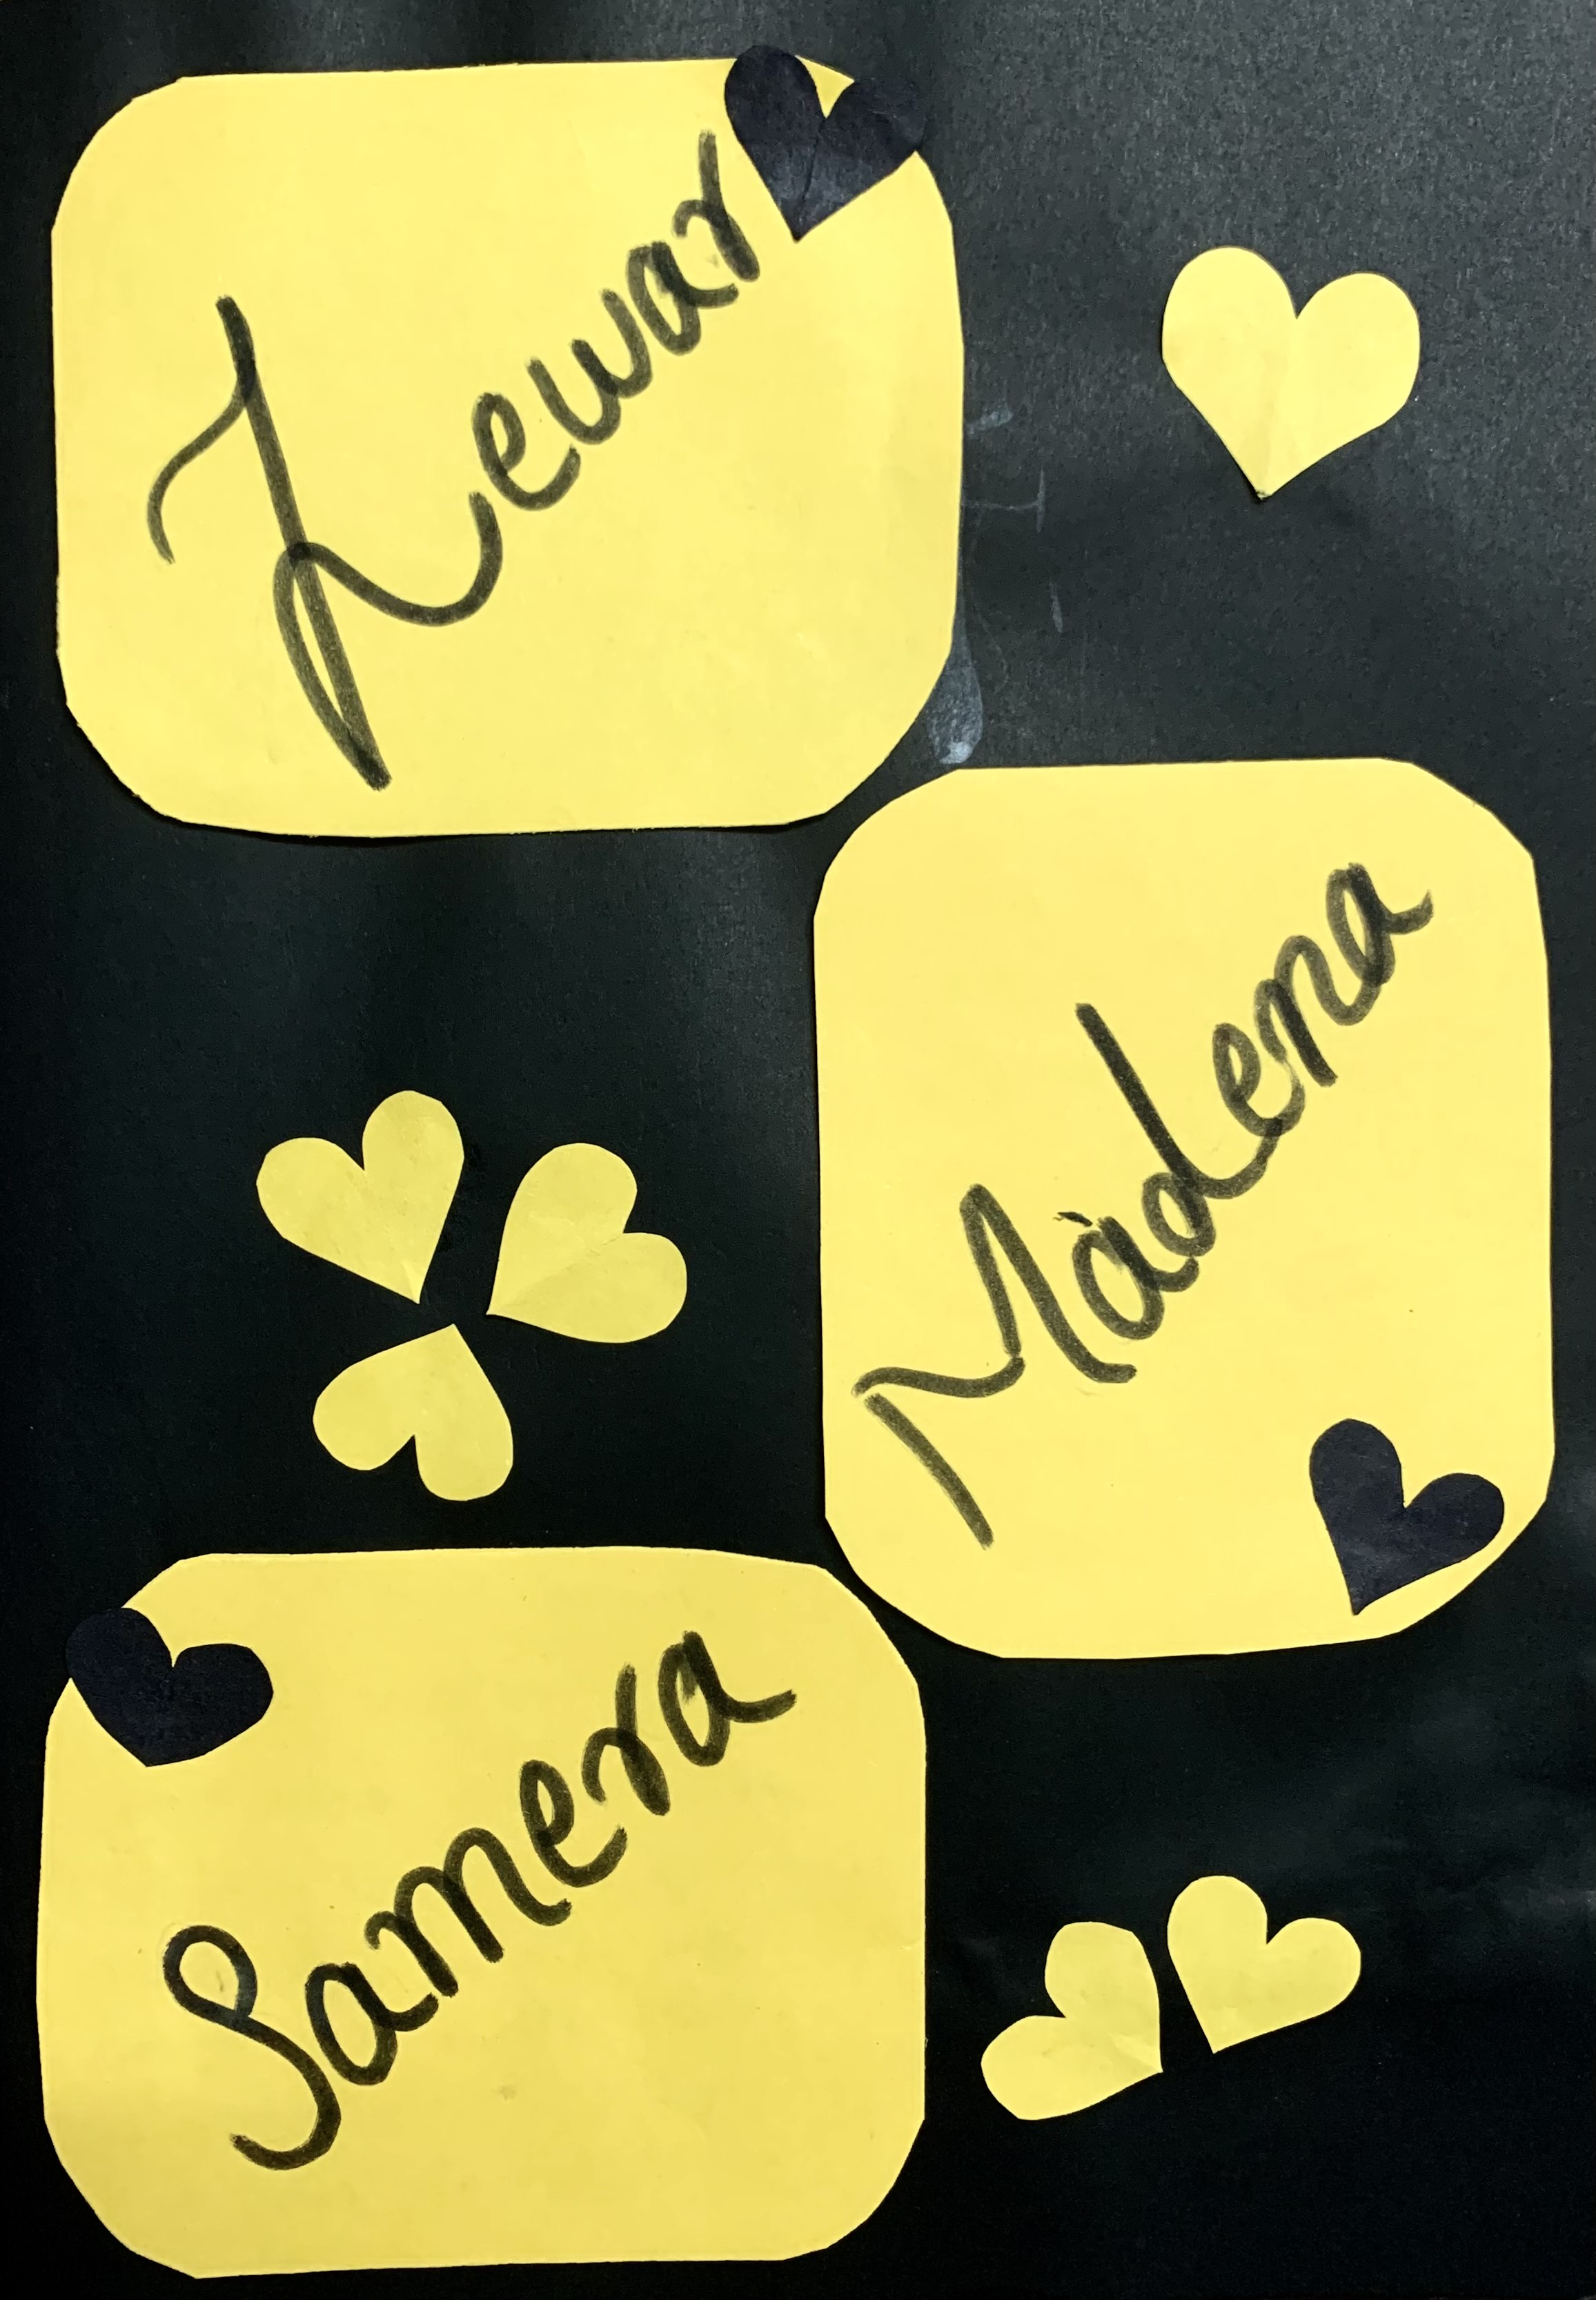 Zewar
Màdena
Samera